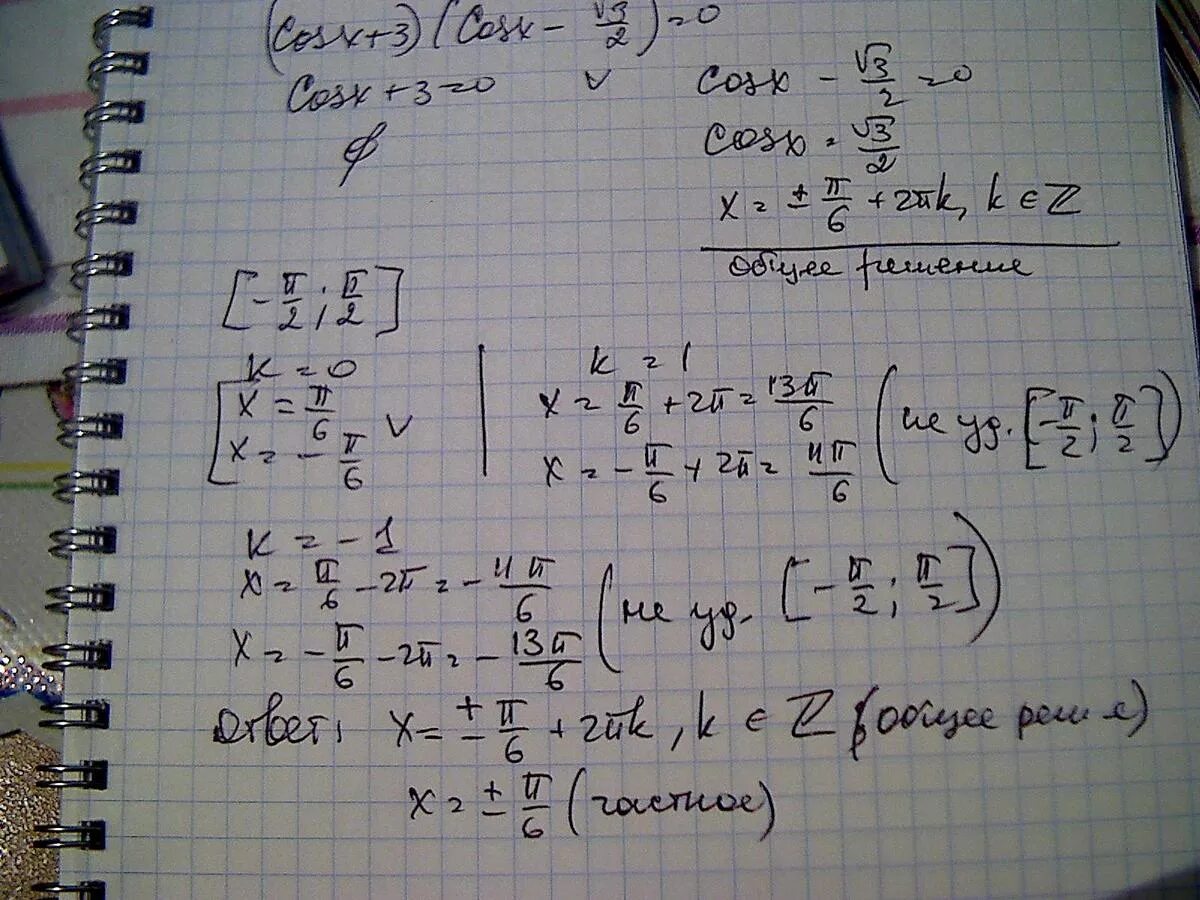 (Cosx+3)(Cosx - √3/2)=0
Cosx+3=0 ∨ Cosx - √3/2 =0
∅ Cosx = √3/2
x = ± π/6 + 2πk, k ∈ ℤ
общее решение
[-π/2; π/2]
k = 0 | k = 1
[x = π/6 ∨ | x = π/6 + 2π = 13π/6 (не уд. [-π/2; π/2])
[x = - π/6 | x = - π/6 + 2π = 11π/6
k = - 1
x = π/6 - 2π = - 11π/6 (не уд. [-π/2; π/2])
x = - π/6 - 2π = - 13π/6
Ответ: x = ± π/6 + 2πk, k ∈ ℤ (общее реш-е)
x = ± π/6 (частное)